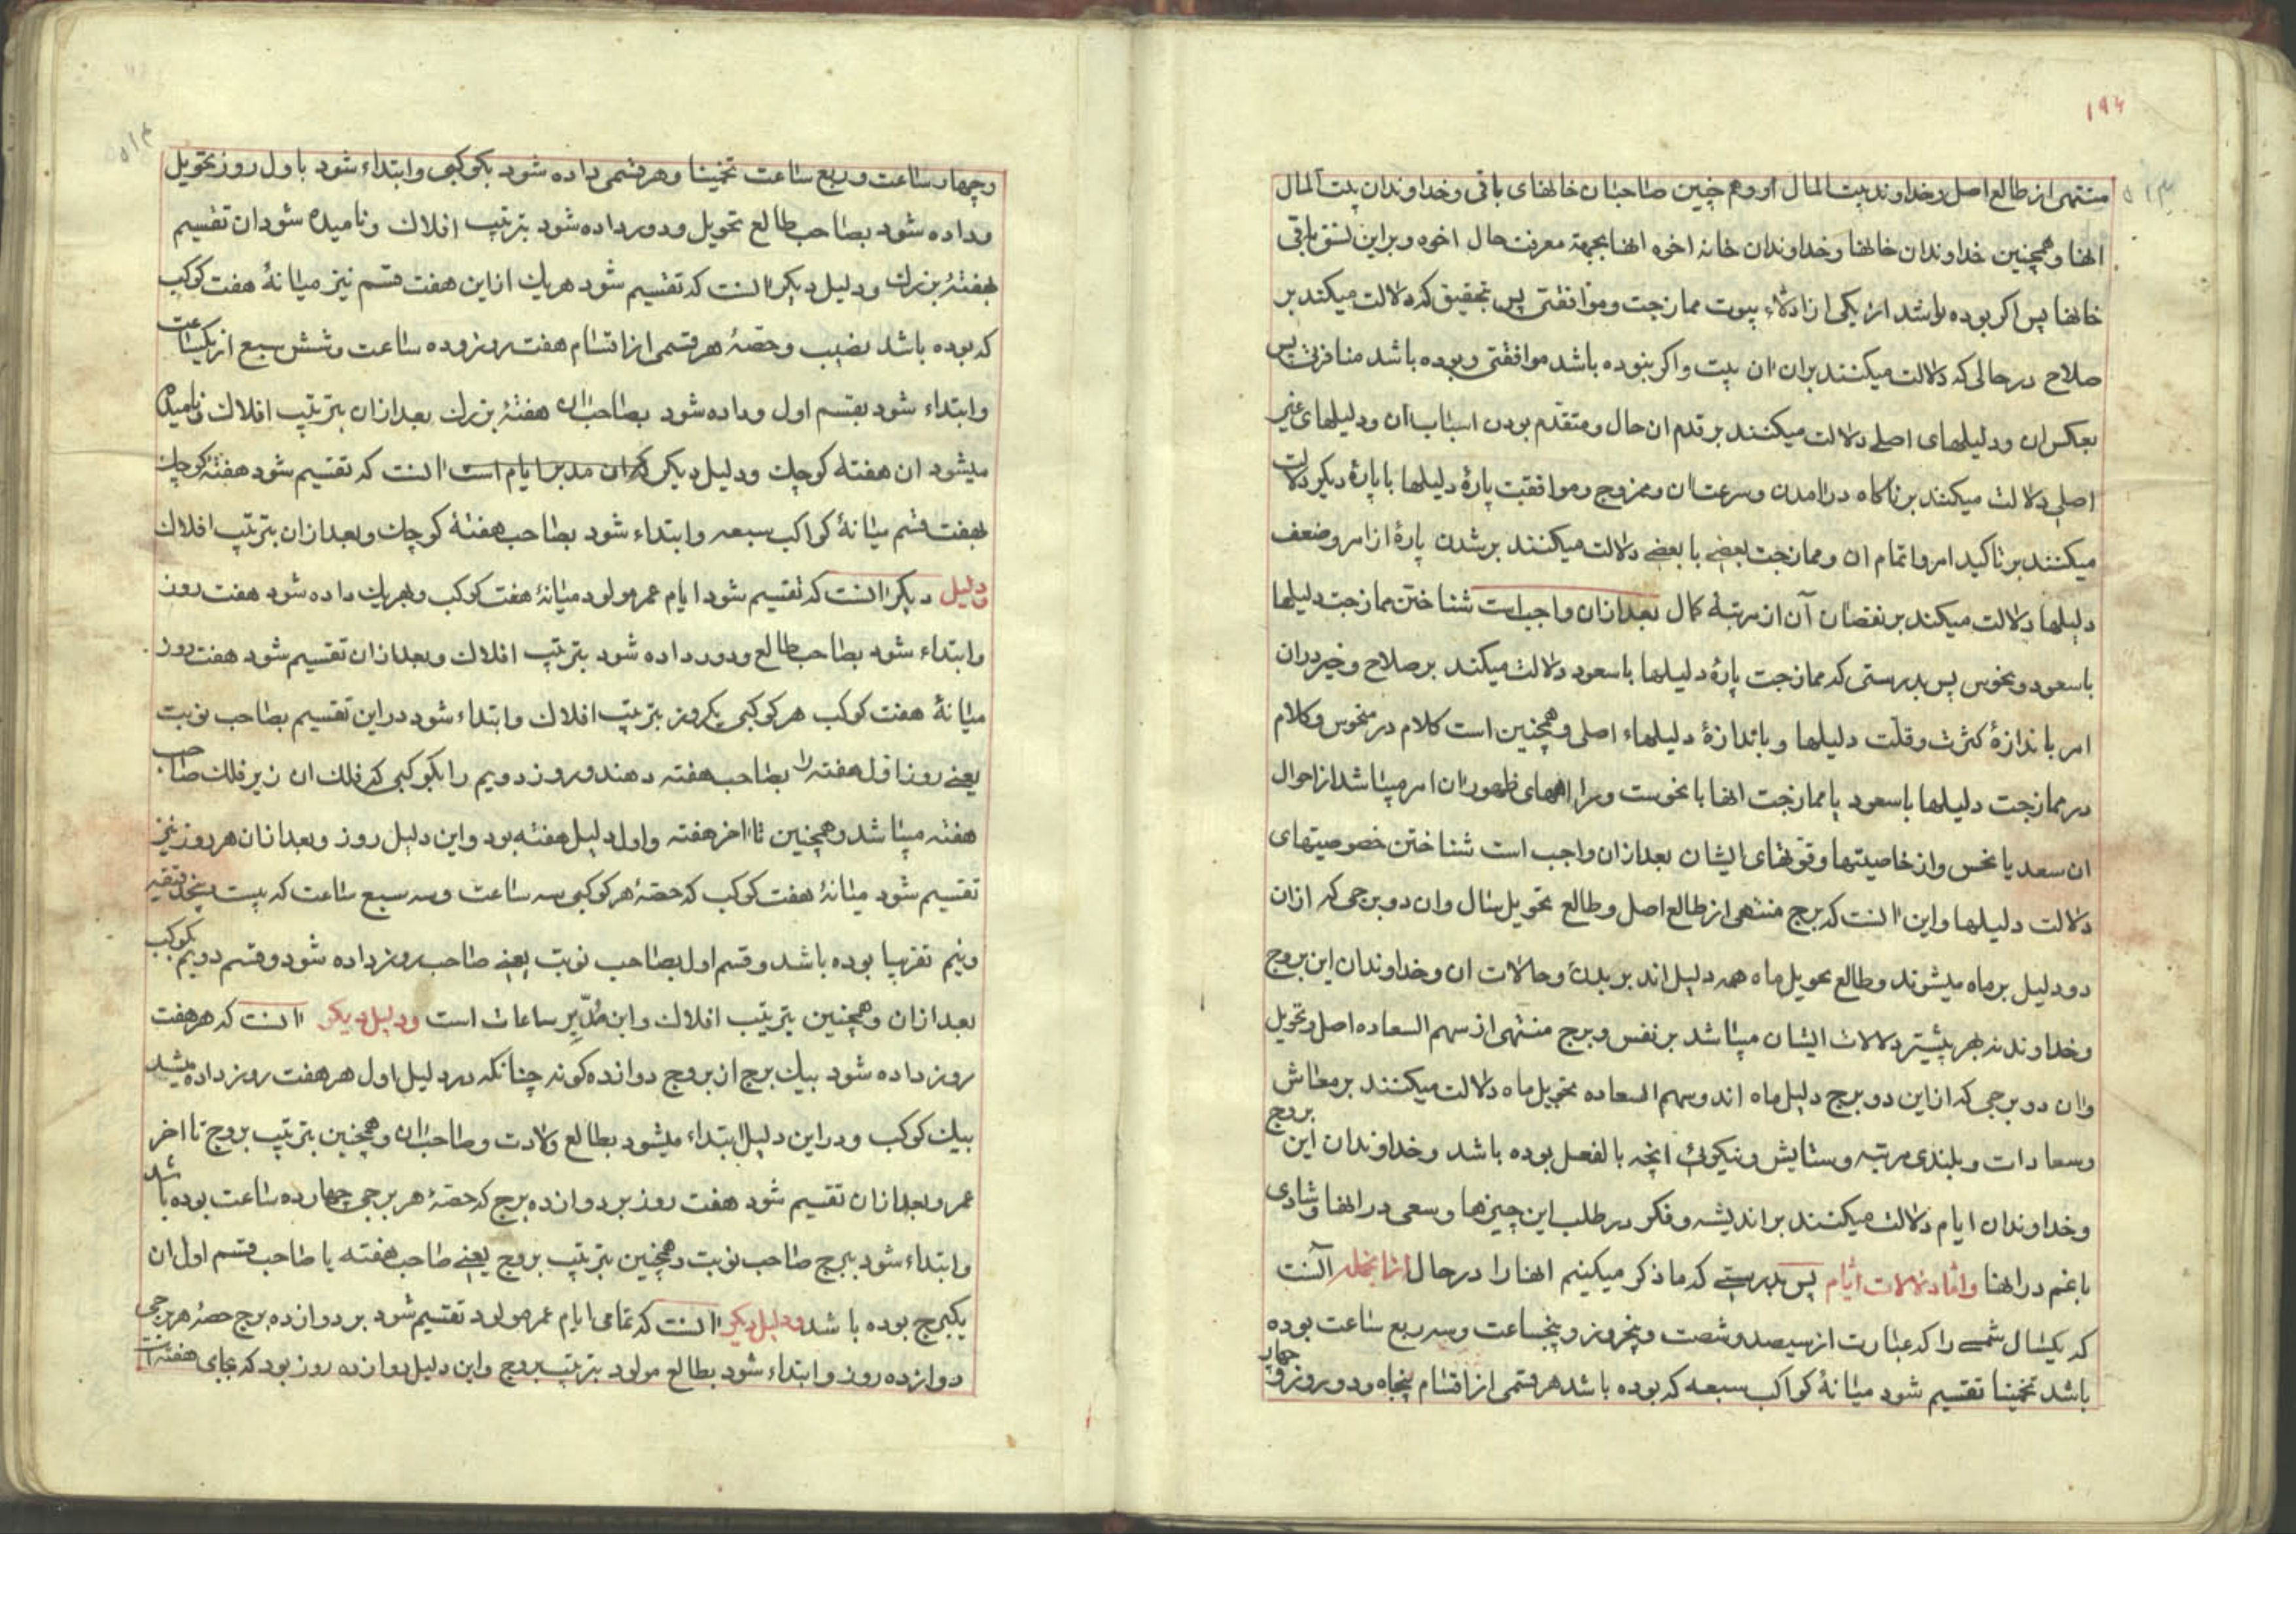 ۱۹۴
۵۱۳
منتهی از طالع اصل و خداوند بیت المال او و هم چنین صاحبان خانهای باقی و خداوندان بیت المال
انها و همچنین خداوندان خانها و خداوندان خانه اخوه انها بجهة معرفت حال اخوه و براین نسق باقی
خانها پس اکر بوده باشد از یکی از ادلاء بیوت ممازجت و موافقتی پس بتحقیق که دلالت میکند بر
صلاح در حالی که دلالت میکنند بران ان بیت و اکر نبوده باشد موافقتی و بوده باشد منافرت پس
بعکس ان و دلیلهای اصلی دلالت میکنند بر قدم ان حال و متقدم بودن اسباب ان و دلیلهای غیر
اصلی دلالت میکنند بر ناکاه درامدن و سرعت ان و ممزوج و موافقت پارۀ دلیلها با پارۀ دیکر دلالت
میکنند بر تاکید امر و اتمام ان و ممازجت بعضی با بعضی دلالت میکنند بر شدن پارۀ از امر و ضعف
دلیلها دلالت میکند بر نقصان آن از مرتبۀ کمال بعد ازان واجب است شناختن ممازجت دلیلها
با سعود و نحوس پس بدرستی که ممازجت پارۀ دلیلها با سعود دلالت میکند بر صلاح و خیر دران
امر باندازۀ کثرت و قلّت دلیلها و باندازۀ دلیلهاء اصلی و همچنین است کلام در منحوس و کلام
در ممازجت دلیلها با سعود یا ممازجت انها با نحوست و مرا انهای ظهور ان امر میباشد از احوال
ان سعد یا نحس و از خاصیتها و قوتهای ایشان بعد ازان واجب است شناختن خصوصیتهای
دلالت دلیلها و این انست که برج منتهی از طالع اصل و طالع تحویل سال و ان دو برجی که ازان
دو دلیل بر ماه میشوند و طالع تحویل ماه همه دلیل اند بر بدن و حالات ان و خداوندان این بروج
و خداوند نه بهر بیشتر دلالات ایشان میباشد بر نفس و برج منتهی از سهم السعاده اصل و تحویل
وان دو برجی که از این دو برج دلیل ماه اند و سهم السعاده تحویل ماه دلالت میکنند بر معاش
و سعادات و بلندی مرتبه و ستایش و نیکوئی انچه بالفعل بوده باشد و خداوندان این بروج
و خداوندان ایام دلالت میکنند بر اندیشه و فکر در طلب این چیزها و سعی در انها و شادی
با غم در انها و امّا دلالات ایّام پس بدرستی که ما ذکر میکنیم انها را در حال ازانجمله آنست
که یکسال شمسی را که عبارت از سیصد و شصت و پنجروز و پنجساعت و سه ربع ساعت بوده
باشد تخمینا تقسیم شود میانۀ کواکب سبعه که بوده باشد هر قسمی از اقسام پنجاه و دو روز و چهار
۵۱۴
و چهار ساعت و ربع ساعت تخمینا و هر قسمی داده شود بکوکبی و ابتداء شود باول روز تحویل
و داده شود بصاحب طالع تحویل و دور داده شود بترتیب افلاك و نامیده شود ان تقسیم
بهفتۀ بزرك و دلیل دیکر انست که تقسیم شود هریك از این هفت قسم نیز میانۀ هفت کوکب
که بوده باشد نصیب و حصّۀ هر قسمی از اقسام هفت روز و ده ساعت و شش سبع از یکساعت
و ابتداء شود بقسم اول و داده شود بصاحب ان هفتۀ بزرك بعد ازان بترتیب افلاك و نامیده
میشود ان هفتۀ کوچك و دلیل دیکر که ان مدبر ایام است انست که تقسیم شود هفتۀ کوچك
بهفت قسم میانۀ کواکب سبعه و ابتداء شود بصاحب هفتۀ کوچك و بعد ازان بترتیب افلاك
و دلیل دیکر انست که تقسیم شود ایام عمر مولود میانۀ هفت کوکب و بهریك داده شود هفت روز
و ابتداء شود بصاحب طالع و دور داده شود بترتیب افلاك و بعد ازان تقسیم شود هفت روز
میانۀ هفت کوکب هر کوکبی یکروز بترتیب افلاك و ابتداء شود در این تقسیم بصاحب نوبت
یعنی روز اول هفته را بصاحب هفته دهند و روز دویم را بکوکبی که فلك ان زیر فلك صاحب
هفته میباشد و همچنین تا اخر هفته و اول دلیل هفته بود و این دلیل روز و بعد ازان هر روز نیز
تقسیم شود میانۀ هفت کوکب که حصّۀ هر کوکبی سه ساعت و سه سبع ساعت که بیست و پنجدقیقه
و نیم تقریبا بوده باشد و قسم اول بصاحب نوبت یعنی صاحب روز داده شود و قسم دویم بکوکب
بعد ازان و همچنین بترتیب افلاك و این مُدبّرِ ساعات است و دلیل دیکر انست که هر هفت
روز داده شود بیك برج از بروج دوازده کونه چنانکه در دلیل اول هر هفت روز داده میشد
بیك کوکب و در این دلیل ابتداء میشود بطالع ولادت و صاحب ان و همچنین بترتیب بروج تا اخر
عمر و بعد ازان تقسیم شود هفت روز بر دوازده برج که حصّۀ هر برجی چهارده ساعت بوده باشد
و ابتداء شود ببرج صاحب نوبت و همچنین بترتیب بروج یعنی صاحب هفته یا صاحب قسم اول ان
یکبرج بوده باشد و دلیل دیکر انست که تمامی ایام عمر مولود تقسیم شود بر دوازده برج حصۀ هر برجی
دوازده روز و ابتداء شود بطالع مولود بترتیب بروج و این دلیل دوازده روز بود که بجای هفته است